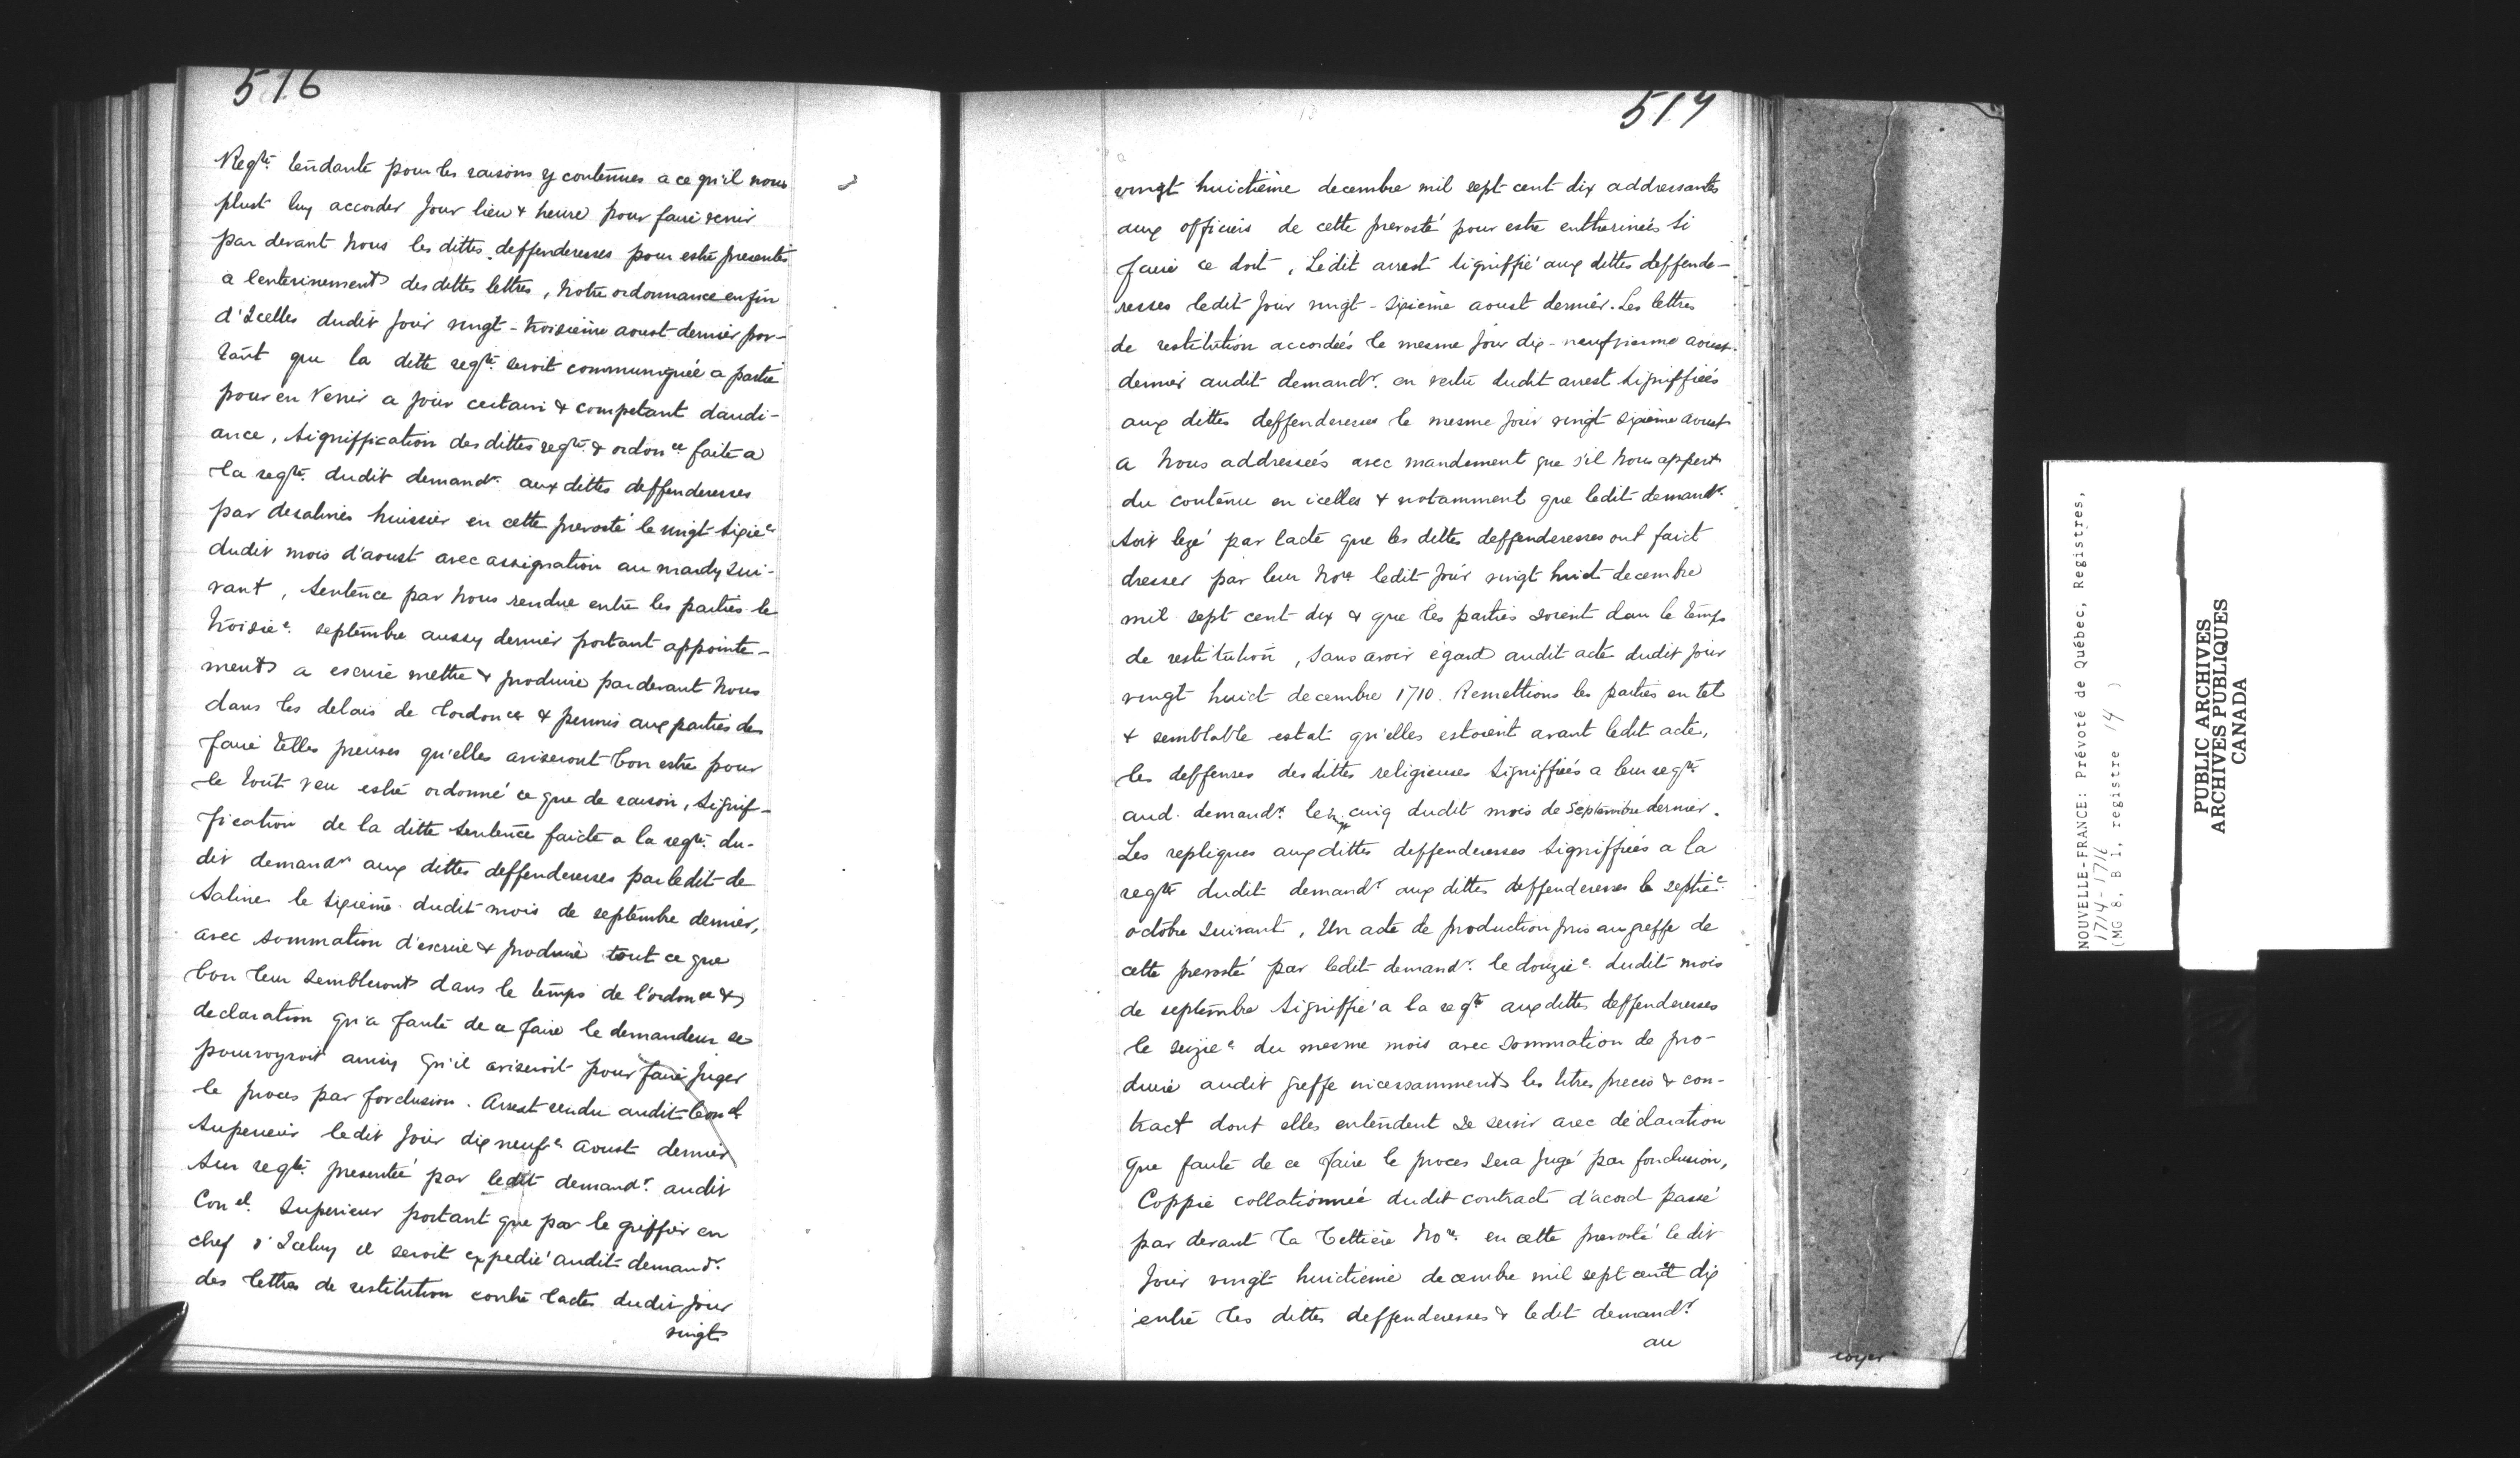 516
Reqte. tendante pour les raisons y contenues a ce qu'il nous
plust luy accorder Jour lieu & heure pour faire venir
par devant Nous les dittes deffenderesses pour estre presentes
a lenterinement des dittes lettres, Notre ordonnance en fin
d'Icelles dudit Jour vingt-troisieme aoust dernier por-
tant que la ditte reqte. seroit communiquée a partie
pour en Venir a jour certain & competant d'audi-
ance, signiffication des dittes reqte. & ordonce faite a
la reqte. dudit demandr. aux dittes deffenderesses
par desalines huissier en cette prevosté le vingt sixie
dudit mois d'aoust avec assignation au mardy sui-
vant, sentence par Nous rendue entre les parties le
troisie. septembre aussy dernier portant appointe-
ment a escrire mettre & produire par devant Nous
dans les delais de lordonce & permis aux parties de
faire telles preuves qu'elles aviseront bon estre pour
le tout veu estre ordonné ce que de raison, signif-
fication de la ditte sentence faicte a la reqte. du-
dit demandr aux dittes deffenderesses par ledit de
Saline le sixieme dudit mois de septembre dernier,
avec sommation d'escrire & produire tout ce que
bon leur sembleront dans le temps de l'ordonce &
declaration qu'a faute de ce faire le demandeur se
pourvoyroit ainsy qu'il aviseroit pour faire juger
le proces par forclusion. Arrest rendu audit Conel
Superieur ledit Jour dix neufe aoust dernier
sur reqte. presentée par ledit demandr. audit
Conel. Superieur portant que par le griffier en
chef d'Iceluy il seroit expedié audit demandr.
des lettres de restitution contre lacte dudit jour
vingt
517
vingt huictième decembre mil sept cent dix addressantes
aux officiers de cette prevosté pour estre entherinées si
faire ce doit, Ledit arrest signiffié aux dittes deffende-
resses ledit Jour vingt-sixieme aoust dernier. Les lettres
de restitution accordées le mesme jour dix-neufviesme aoust
dernier audit demandr. en vertu dudit arrest signiffiées
aux dittes deffenderesses le mesme jour vingt sixieme aoust
a Nous addressées avec mandement que s'il Nous appert
du contenu en icelles & notamment que ledit demandr.
soit lezé par lacte que les dittes deffenderesses ont faict
dresser par leur Nore ledit Jour vingt huict decembre
mil sept cent dix & que les parties soient dan le temps
de restitution, sans avoir égard audit acte dudit jour
vingt huict decembre 1710. Remettions les parties en tel
& semblable estat qu'elles estoient avant ledit acte,
les deffenses des dittes religieuses signiffiées a leur reqte
aud. demandr. le vgt cinq dudit mois de Septembre dernier.
Les repliques aux dittes deffenderesses signiffiées a la
reqte dudit demandr aux dittes deffenderesses le septie.
octobre suivant, Un acte de production pris au greffe de
cette prevosté par ledit demandr. le douzie. dudit mois
de septembre signiffié a la reqte aux dittes deffenderesses
le seizie. du mesme mois avec sommation de pro-
duire audit greffe incessamment les titres precis & con-
tract dont elles entendent se servir avec déclaration
que faute de ce faire le proces sera jugé par forclusion,
Coppie collationnée dudit contract d'acord passé
par devant la Cettiere Nore. en cette prevosté ledit
Jour vingt huictieme decembre mil sept cent dix
entre les dittes deffenderesses & ledit demandr.
au
NOUVELLE-FRANCE: Prévoté de Québec, Registres,
1714-1716
(MG 8, B 1, registre 14 )
PUBLIC ARCHIVES
ARCHIVES PUBLIQUES
CANADA